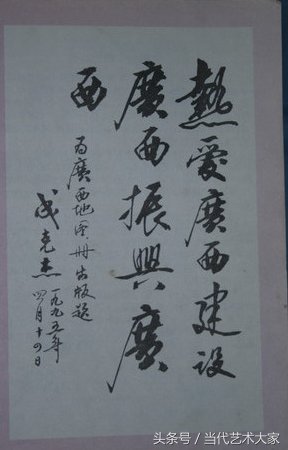 熱愛廣西建設
廣西振興廣
西
为廣西地图册出版题
成克杰
一九九五年
四月十四日
头条号 / 当代艺术大家